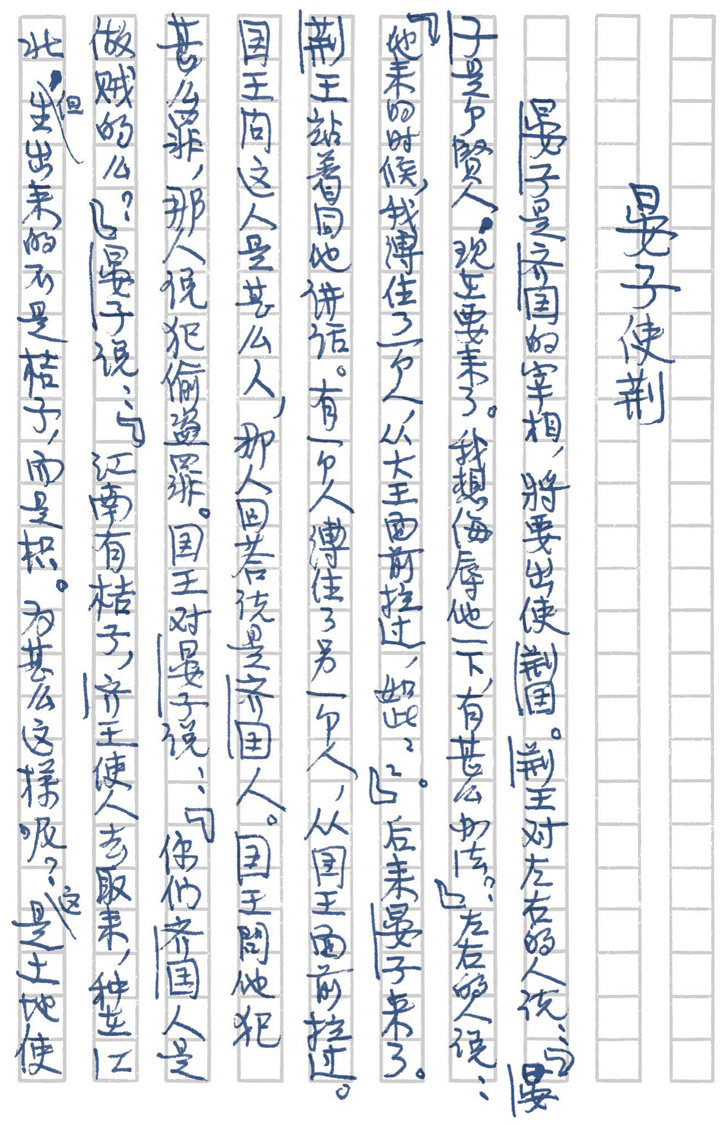 晏子使荆
晏子是齐国的宰相，將要出使荆国。荆王对左右的人说：『晏
子是个賢人。现在要来了。我想侮辱他一下，有甚么办法？』左右的人说：
『他来的时候，我溥住了一个人，从大王面前拉过，如此？』。后来晏子来了。
荆王站着同他讲话。有一个人溥住了另一个人，从国王面前拉过。
国王问这人是甚么人，那人回答说是齐国人。国王問他犯
甚么罪，那人说犯偷盗罪。国王对晏子说：『你们齐国人是
做贼的么？』晏子说：『江南有桔子，齐王使人去取来，种在江
北，但生出来的不是桔子，而是枳。为甚么这样呢？这是土地使